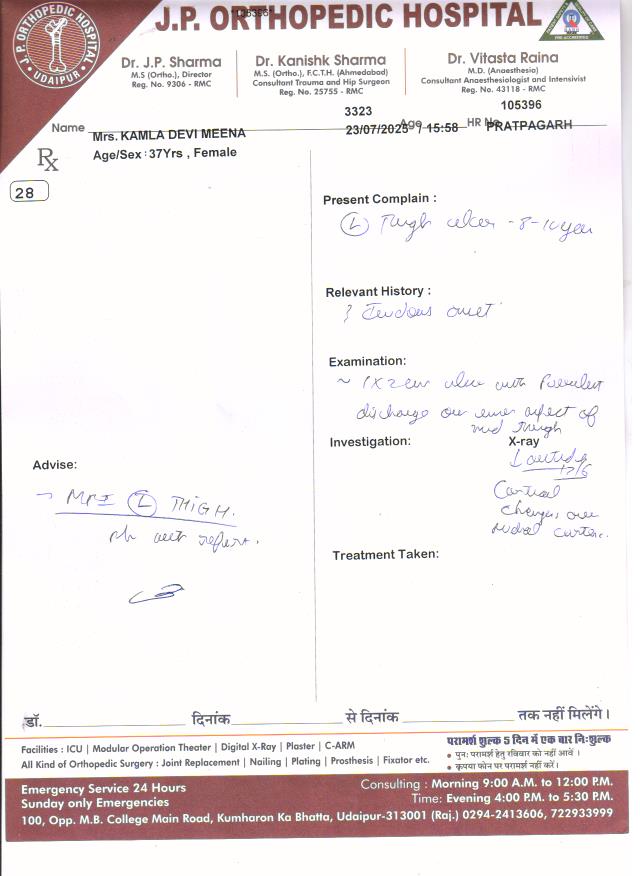 J.P. ORTHOPEDIC HOSPITAL
J.P. ORTHOPEDIC HOSPITAL
UDAIPUR
Dr. J.P. Sharma
M.S (Ortho.), Director
Reg. No. 9306 - RMC
Dr. Kanishk Sharma
M.S. (Ortho.), F.C.T.H. (Ahmedabad)
Consultant Trauma and Hip Surgeon
Reg. No. 25755 - RMC
Dr. Vitasta Raina
M.D. (Anaesthesia)
Consultant Anaesthesiologist and Intensivist
Reg. No. 43118 - RMC
3323
105396
Name Mrs. KAMLA DEVI MEENA
23/07/2025 / 15:58
Age
HR No.
PRATPAGARH
Rx
Age/Sex : 37Yrs , Female
28
Present Complain :
(L) Thigh ulcer - 8-10 year
Relevant History :
onset
Examination:
~ 1x2 cm ulcer with Purulent
discharge over inner aspect of
mid Thigh
Investigation:
X-ray
17/6
Cortical
changes over
medial cortex.
Advise:
→ MRI (L) THIGH.
with report.
Treatment Taken:
डॉ. दिनांक से दिनांक तक नहीं मिलेंगे।
Facilities : ICU | Modular Operation Theater | Digital X-Ray | Plaster | C-ARM
All Kind of Orthopedic Surgery : Joint Replacement | Nailing | Plating | Prosthesis | Fixator etc.
परामर्श शुल्क 5 दिन में एक बार निःशुल्क
• पुनः परामर्श हेतु रविवार को नहीं आवें ।
• कृपया फोन पर परामर्श नहीं करें।
Emergency Service 24 Hours
Sunday only Emergencies
Consulting : Morning 9:00 A.M. to 12:00 P.M.
Time: Evening 4:00 P.M. to 5:30 P.M.
100, Opp. M.B. College Main Road, Kumharon Ka Bhatta, Udaipur-313001 (Raj.) 0294-2413606, 722933999